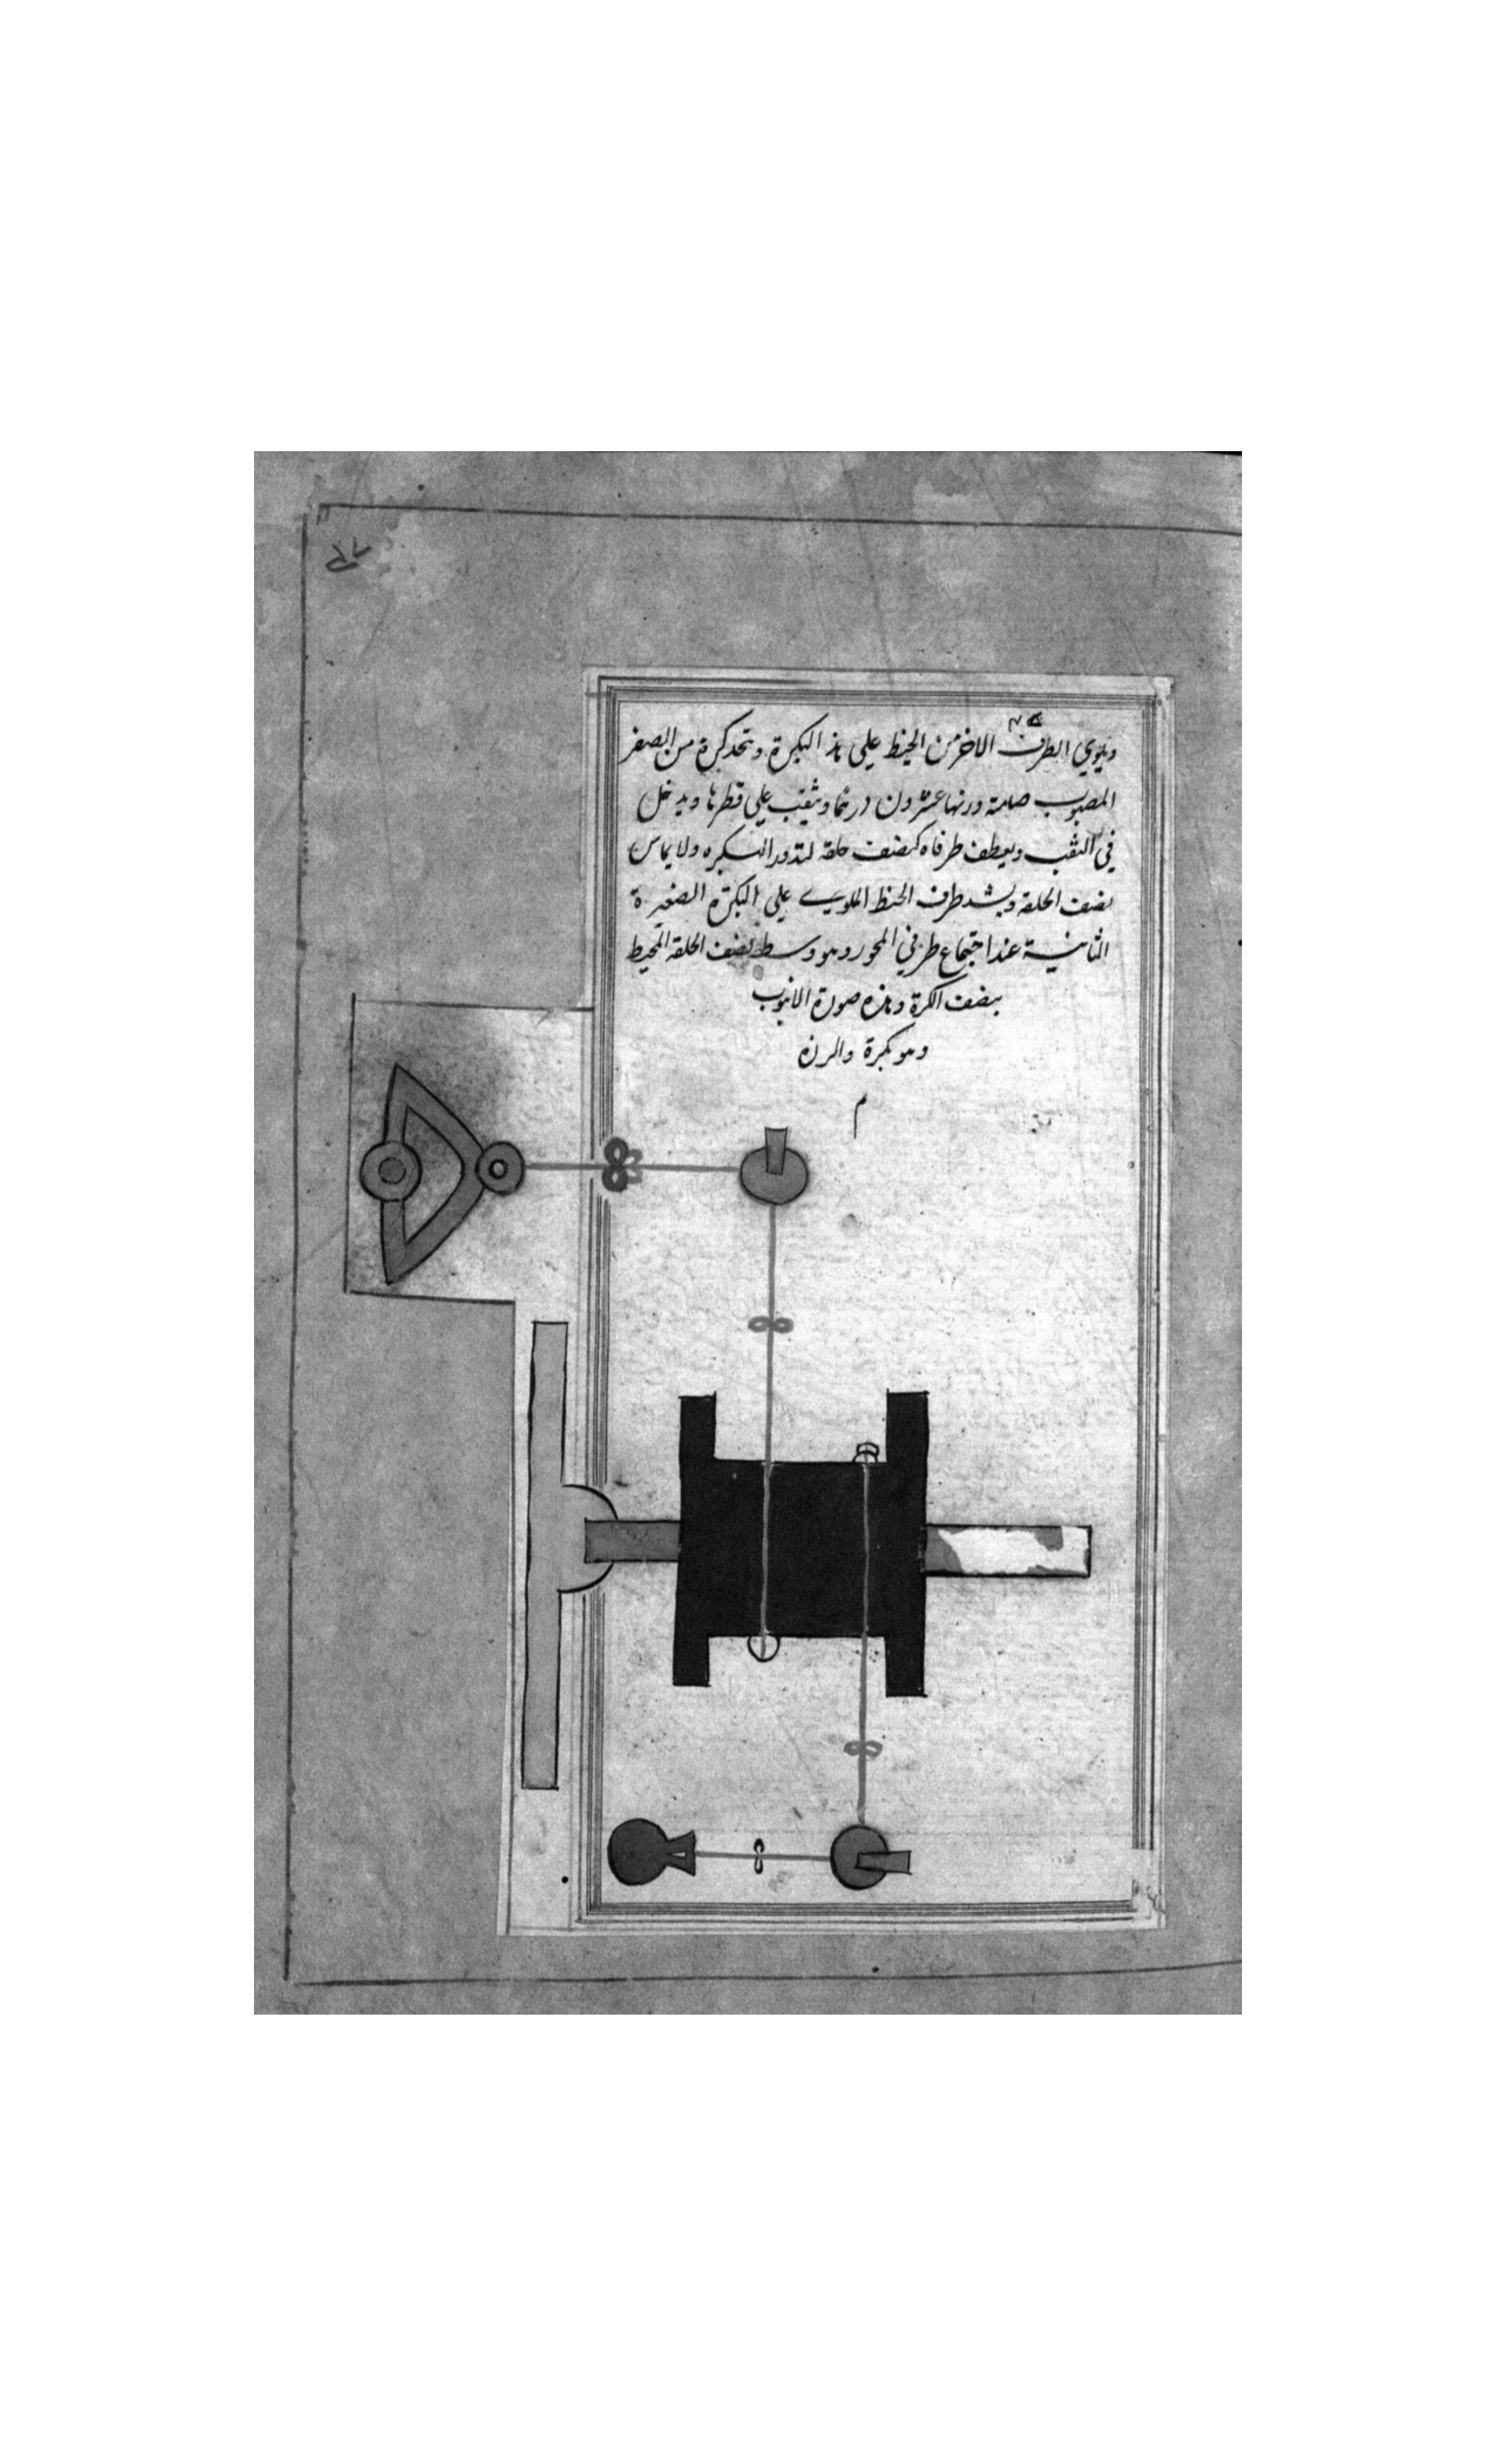 ويلوي الطرف الاخر من الخيط علي هذه البكرة وتتخذ كرة من الصفر
المصبوب صلمتة وزنها عشرون درهما ويثقب علي قطرها ويدخل
في الثقب ويعطف طرفاه كنصف حلقه لتدور البكره ولا يماس
نصف الحلقه ويشد طرف الخيط الملوي علي البكرة الصغيرة
الثانية عند اجتماع طرفي المحور وهو وسط نصف الحلقه المحيط
بنصف الكرة وهذه صورة الانبوب
وهو بكرة والرزه
م